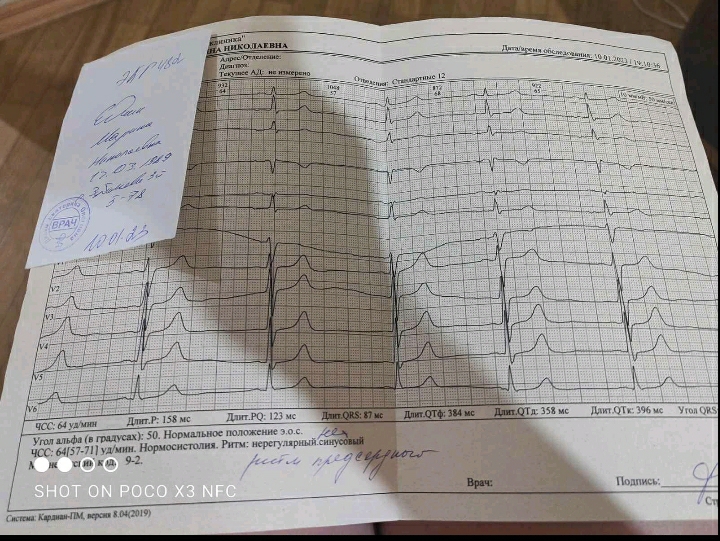 клиника"
НА НИКОЛАЕВНА
Дата/время обследования: 10.01.2023 / 19:10:36
Адрес/Отделение:
Диагноз:
Текущее АД: не измерено
Отведения: Стандартные 12
932 1048 872 922
64 57 68 65
Марина
Николаевна
17.03.1989
5-78
ВРАЧ
10.01.23
V2
V3
V4
V5
V6
ЧСС: 64 уд/мин Длит.P: 158 мс Длит.PQ: 123 мс Длит.QRS: 87 мс Длит.QTф: 384 мс Длит.QTд: 358 мс Длит.QTк: 396 мс Угол QRS
Угол альфа (в градусах): 50. Нормальное положение э.о.с.
ЧСС: 64[57-71] уд/мин. Нормосистолия. Ритм: нерегулярный синусовый
код: 9-2.
ритм предсердного
Врач:
Подпись:
Ст
SHOT ON POCO X3 NFC
Система: Кардиан-ПМ, версия 8.04(2019)